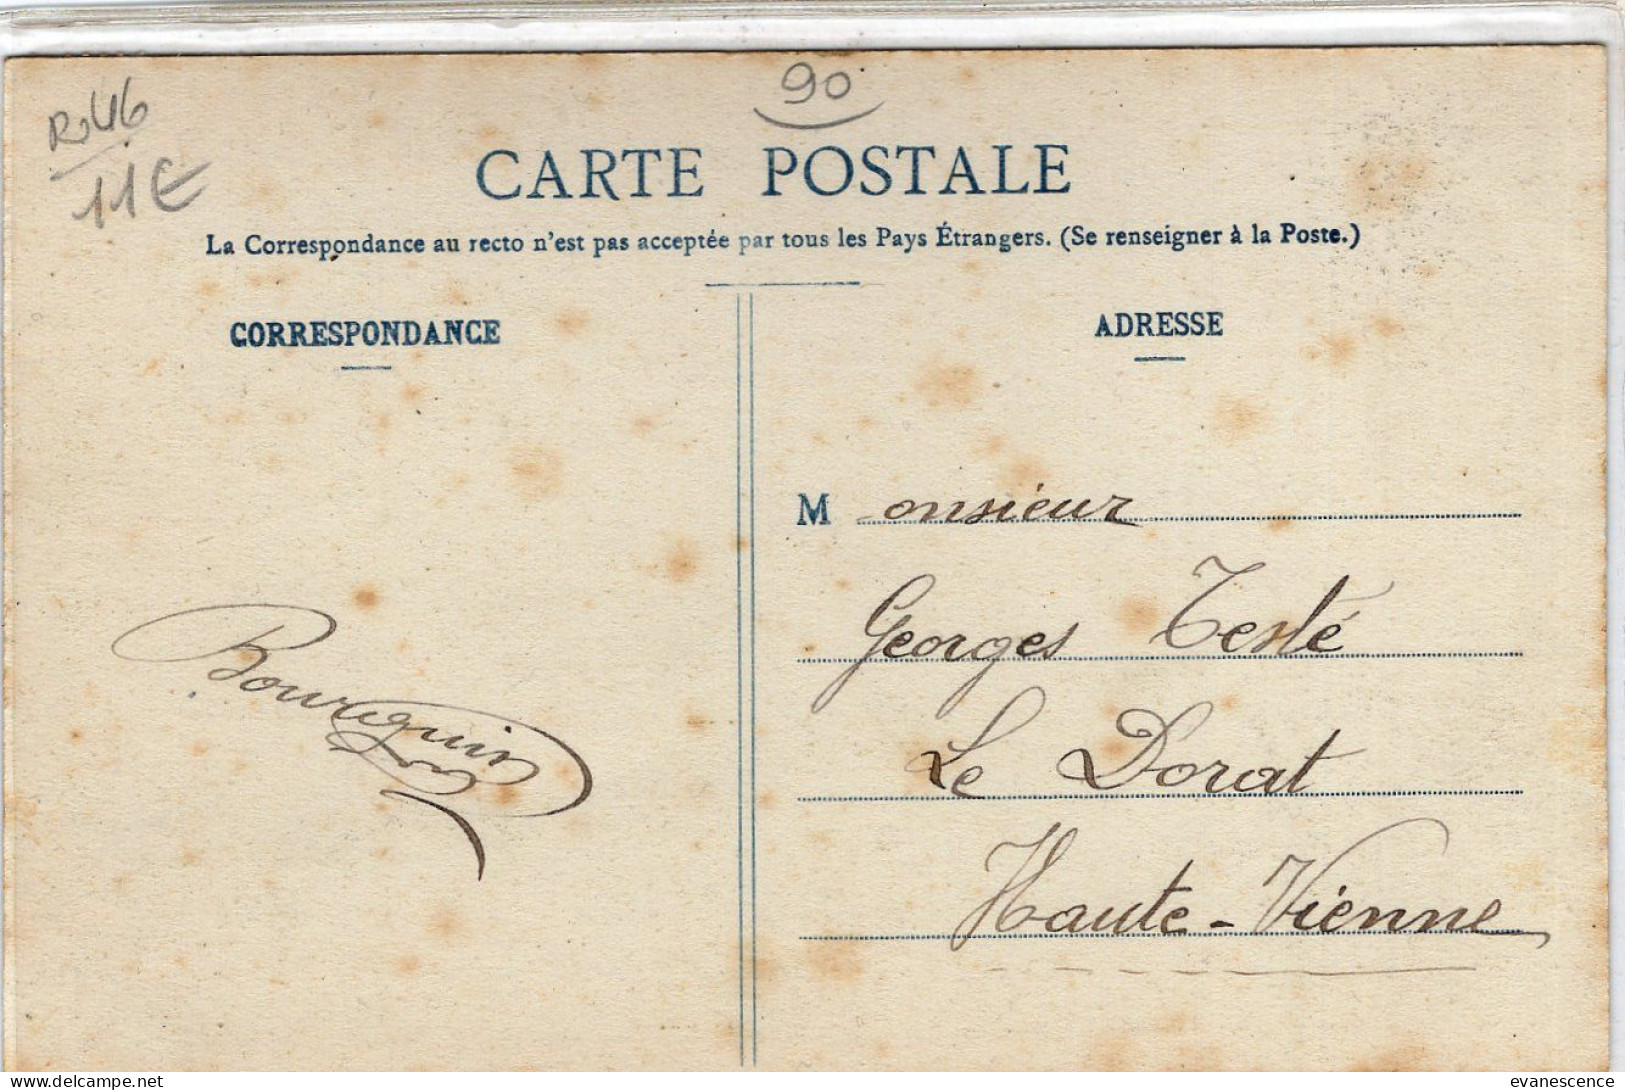 90
R.46
11€
CARTE POSTALE
La Correspondance au recto n'est pas acceptée par tous les Pays Étrangers. (Se renseigner à la Poste.)
CORRESPONDANCE
Bourguin
ADRESSE
Monsieur
Georges Testé
Le Dorat
Haute-Vienne
delcampe.net
evanescence